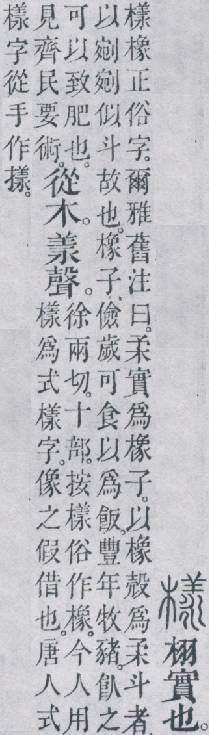 樣 栩實也。
樣橡正俗字。爾雅舊注曰。柔實爲橡子。以橡殼爲柔斗者
以剜剜似斗故也。橡子、儉歲可食以爲飯。豐年牧豬飤之
可以致肥也。
見齊民要術。
從木。羕聲。
徐兩切。十部。按樣俗作橡。今人用
樣爲式樣字。像之假借也。唐人式
樣字從手作㨾。